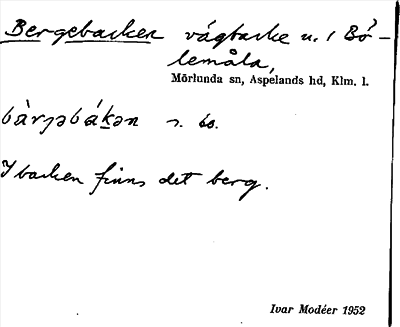 Bergebacken vägbacke u. / Bö-
lemåla,
Mörlunda sn, Aspelands hd, Klm. l.
bàrjəbákən
I backen finns det berg.
Ivar Modéer 1952